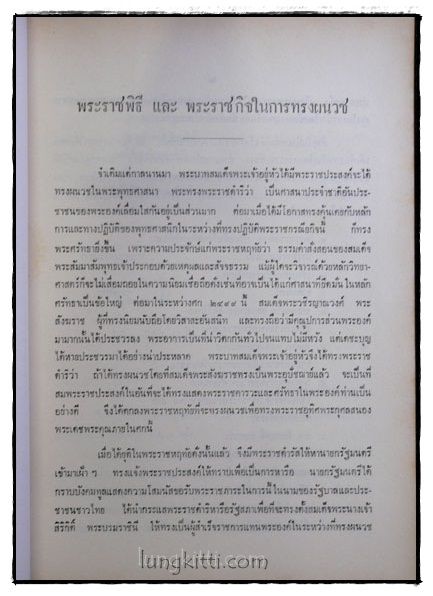 พระราชพิธี และ พระราชกิจในการทรงผนวช
จำเดิมแต่กาลนานมา พระบาทสมเด็จพระเจ้าอยู่หัวได้มีพระราชประสงค์จะได้
ทรงผนวชในพระพุทธศาสนา พระทรงพระราชดำริว่า เป็นศาสนาประจำชาติอันประ-
ชาชนของพระองค์เลื่อมใสกันอยู่เป็นส่วนมาก ต่อมาเมื่อได้มีโอกาสทรงคุ้นเคยกับหลัก
การและทางปฏิบัติของพุทธศาสนิกในระหว่างที่ทรงปฏิบัติพระราชกรณียกิจนี้ ก็ทรง
พระศรัทธายิ่งขึ้น เพราะความประจักษ์แก่พระราชหฤทัยว่า ธรรมคำสั่งสอนของสมเด็จ
พระสัมมาสัมพุทธเจ้าประกอบด้วยเหตุผลและสัจจธรรม แม้ผู้ใดจะวิจารณ์ด้วยหลักวิทยา-
ศาสตร์ก็จะไม่เสื่อมถอยในความนิยมเชื่อถือดั่งเช่นที่อาจเป็นได้แก่ศาสนาที่ยึดมั่นในหลัก
ศรัทธาเป็นข้อใหญ่ ต่อมาในระหว่างศก ๒๔๙๙ นี้ สมเด็จพระวชิรญาณวงศ์ พระ
สังฆราช ผู้ที่ทรงนิยมนับถือโดยวิสาสะอันสนิท และทรงถือว่ามีคุณูปการส่วนพระองค์
มามากนั้นได้ประชวรลง พระอาการเป็นที่น่าวิตกกันทั่วไปจนแทบไม่มีหวัง แต่เดชะบุญ
ได้หายประชวรมาได้อย่างน่าประหลาด พระบาทสมเด็จพระเจ้าอยู่หัวจึงได้ทรงพระราช
ดำริว่า ถ้าได้ทรงผนวชโดยที่สมเด็จพระสังฆราชทรงเป็นพระอุปัชฌาย์แล้ว จะเป็นที่
สมพระราชประสงค์ในอันที่จะได้ทรงแสดงพระราชคารวะและศรัทธาในพระองค์ท่านเป็น
อย่างดี จึงได้ตกลงพระราชหฤทัยที่จะทรงผนวชเพื่อทรงพระราชอุทิศพระกุศลสนอง
พระเดชพระคุณภายในศกนี้
เมื่อได้ยุติในพระราชหฤทัยดังนั้นแล้ว จึงมีพระราชดำรัสให้หานายกรัฐมนตรี
เข้ามาเฝ้า ๆ ทรงแจ้งพระราชประสงค์ให้ทราบเพื่อเป็นการหารือ นายกรัฐมนตรีได้
กราบบังคมทูลแสดงความโสมนัสขอรับพระราชภาระในการนี้ในนามของรัฐบาลและประ-
ชาชนชาวไทย ได้นำกระแสพระราชดำริหารือรัฐสภาเพื่อที่จะทรงตั้งสมเด็จพระนางเจ้า
สิริกิติ์ พระบรมราชินี ให้ทรงเป็นผู้สำเร็จราชการแทนพระองค์ในระหว่างที่ทรงผนวช
lungkitti.com